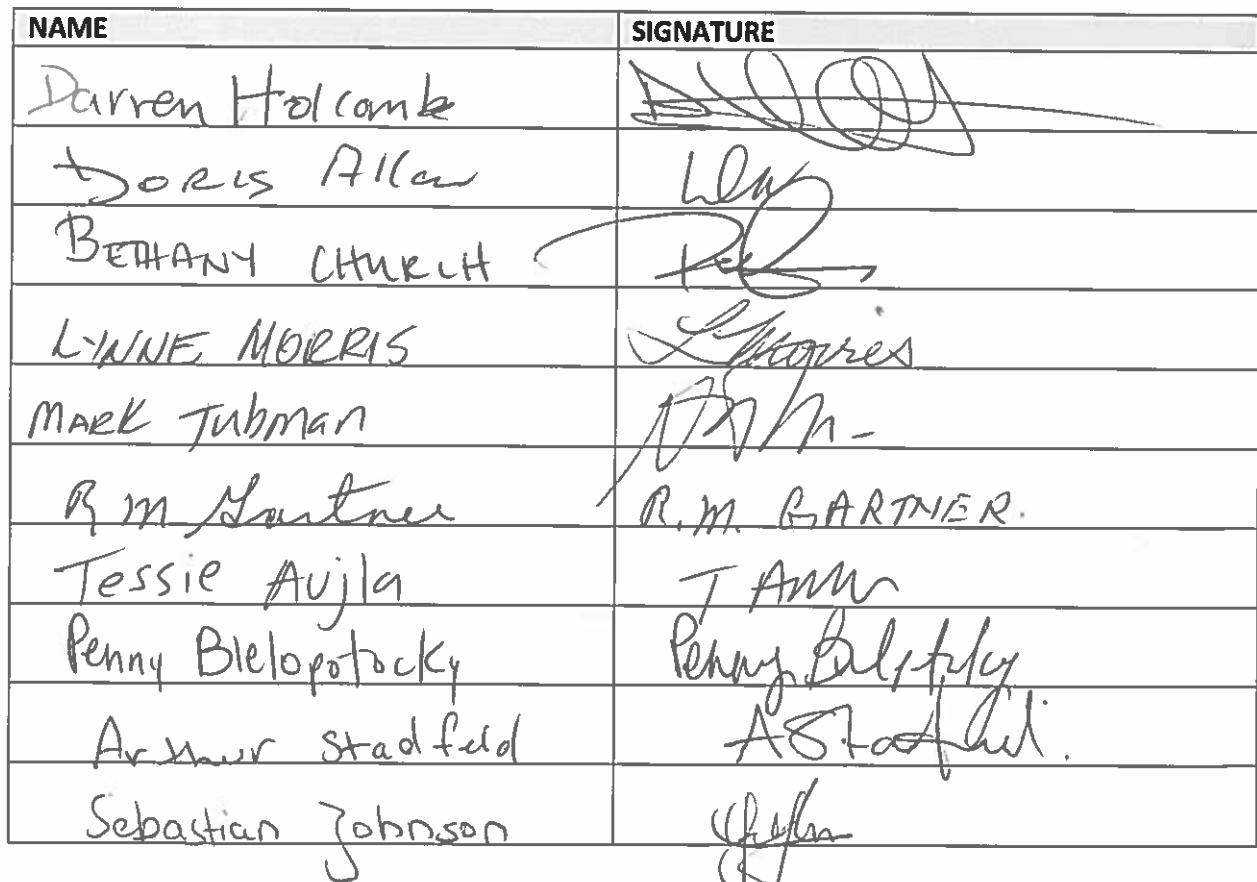 NAME SIGNATURE
Darren Holcomb
DORIS Allan
BETHANY CHURCH
LYNNE MORRIS LMorris
MARK Tubman
R M Gartner R. M. GARTNER.
Tessie Aujla T
Penny Blelopotocky Penny
Arthur Stadfeld A Stadfeld.
Sebastian Johnson